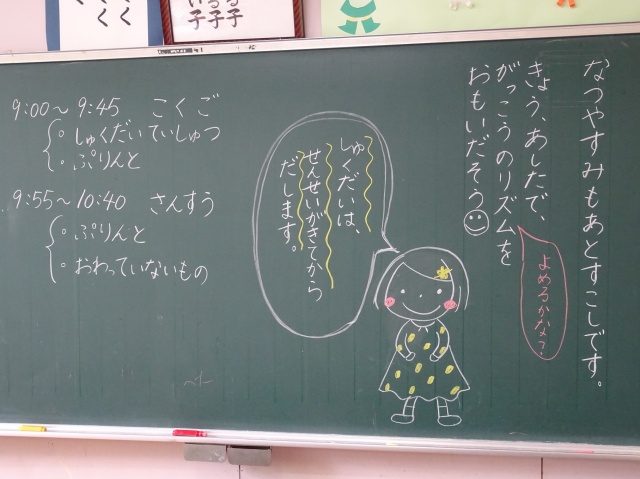 なつやすみもあとすこしです。
きょう、あしたで、
がっこうのリズムを
おもいだそう
よめるかな?
しゅくだいは、
せんせいがきてから
だします。
9:00～9:45 こくご
・しゅくだいていしゅつ
・ぷりんと
9:55～10:40 さんすう
・ぷりんと
・おわっていないもの